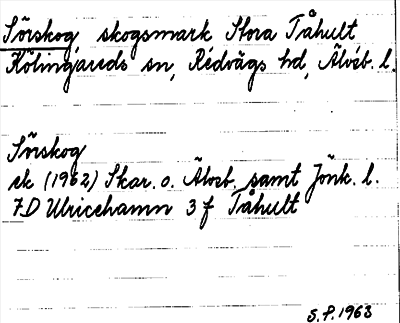 Sörskog skogsmark Stora Tåhult
Kölingareds sn, Redvägs hd, Älvsb. l.
Sörskog
ek (1962) Skar. o. Älvsb. samt Jönk. l.
7D Ulricehamn 3f Tåhult
S.P. 1963